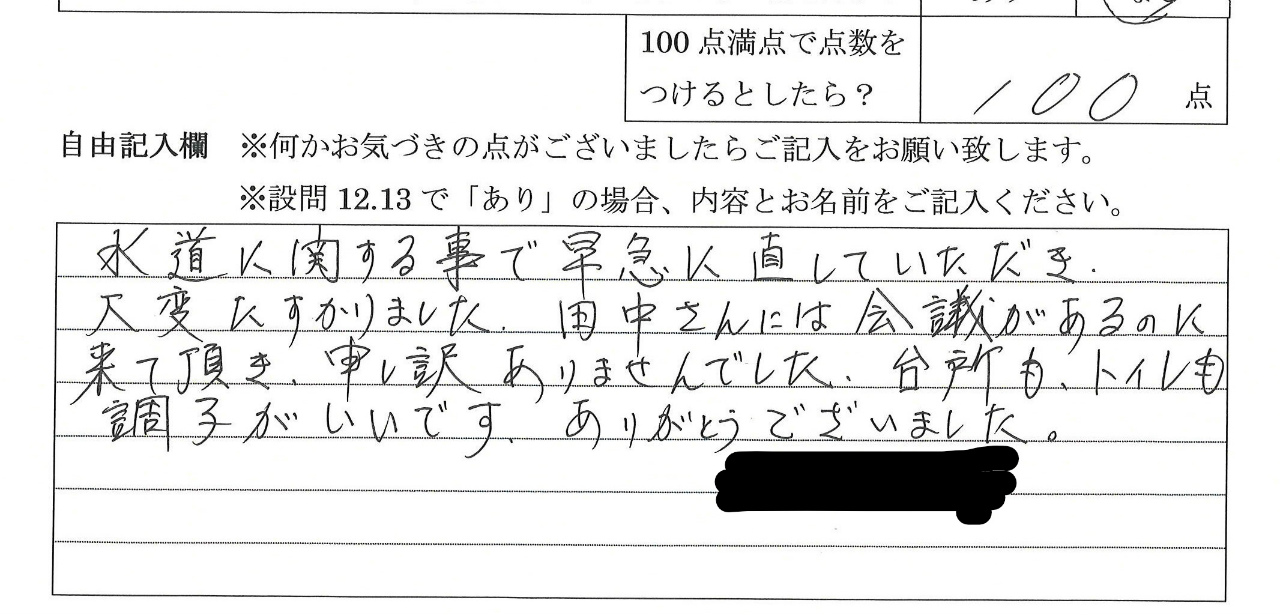 100点満点で点数を
つけるとしたら？
100 点
自由記入欄 ※何かお気づきの点がございましたらご記入をお願い致します。
※設問 12.13 で「あり」の場合、内容とお名前をご記入ください。
水道に関する事で早急に直していただき.
大変たすかりました. 田中さんには会議があるのに
来て頂き、申し訳ありませんでした. 台所も、トイレも
調子がいいです. ありがとうございました。